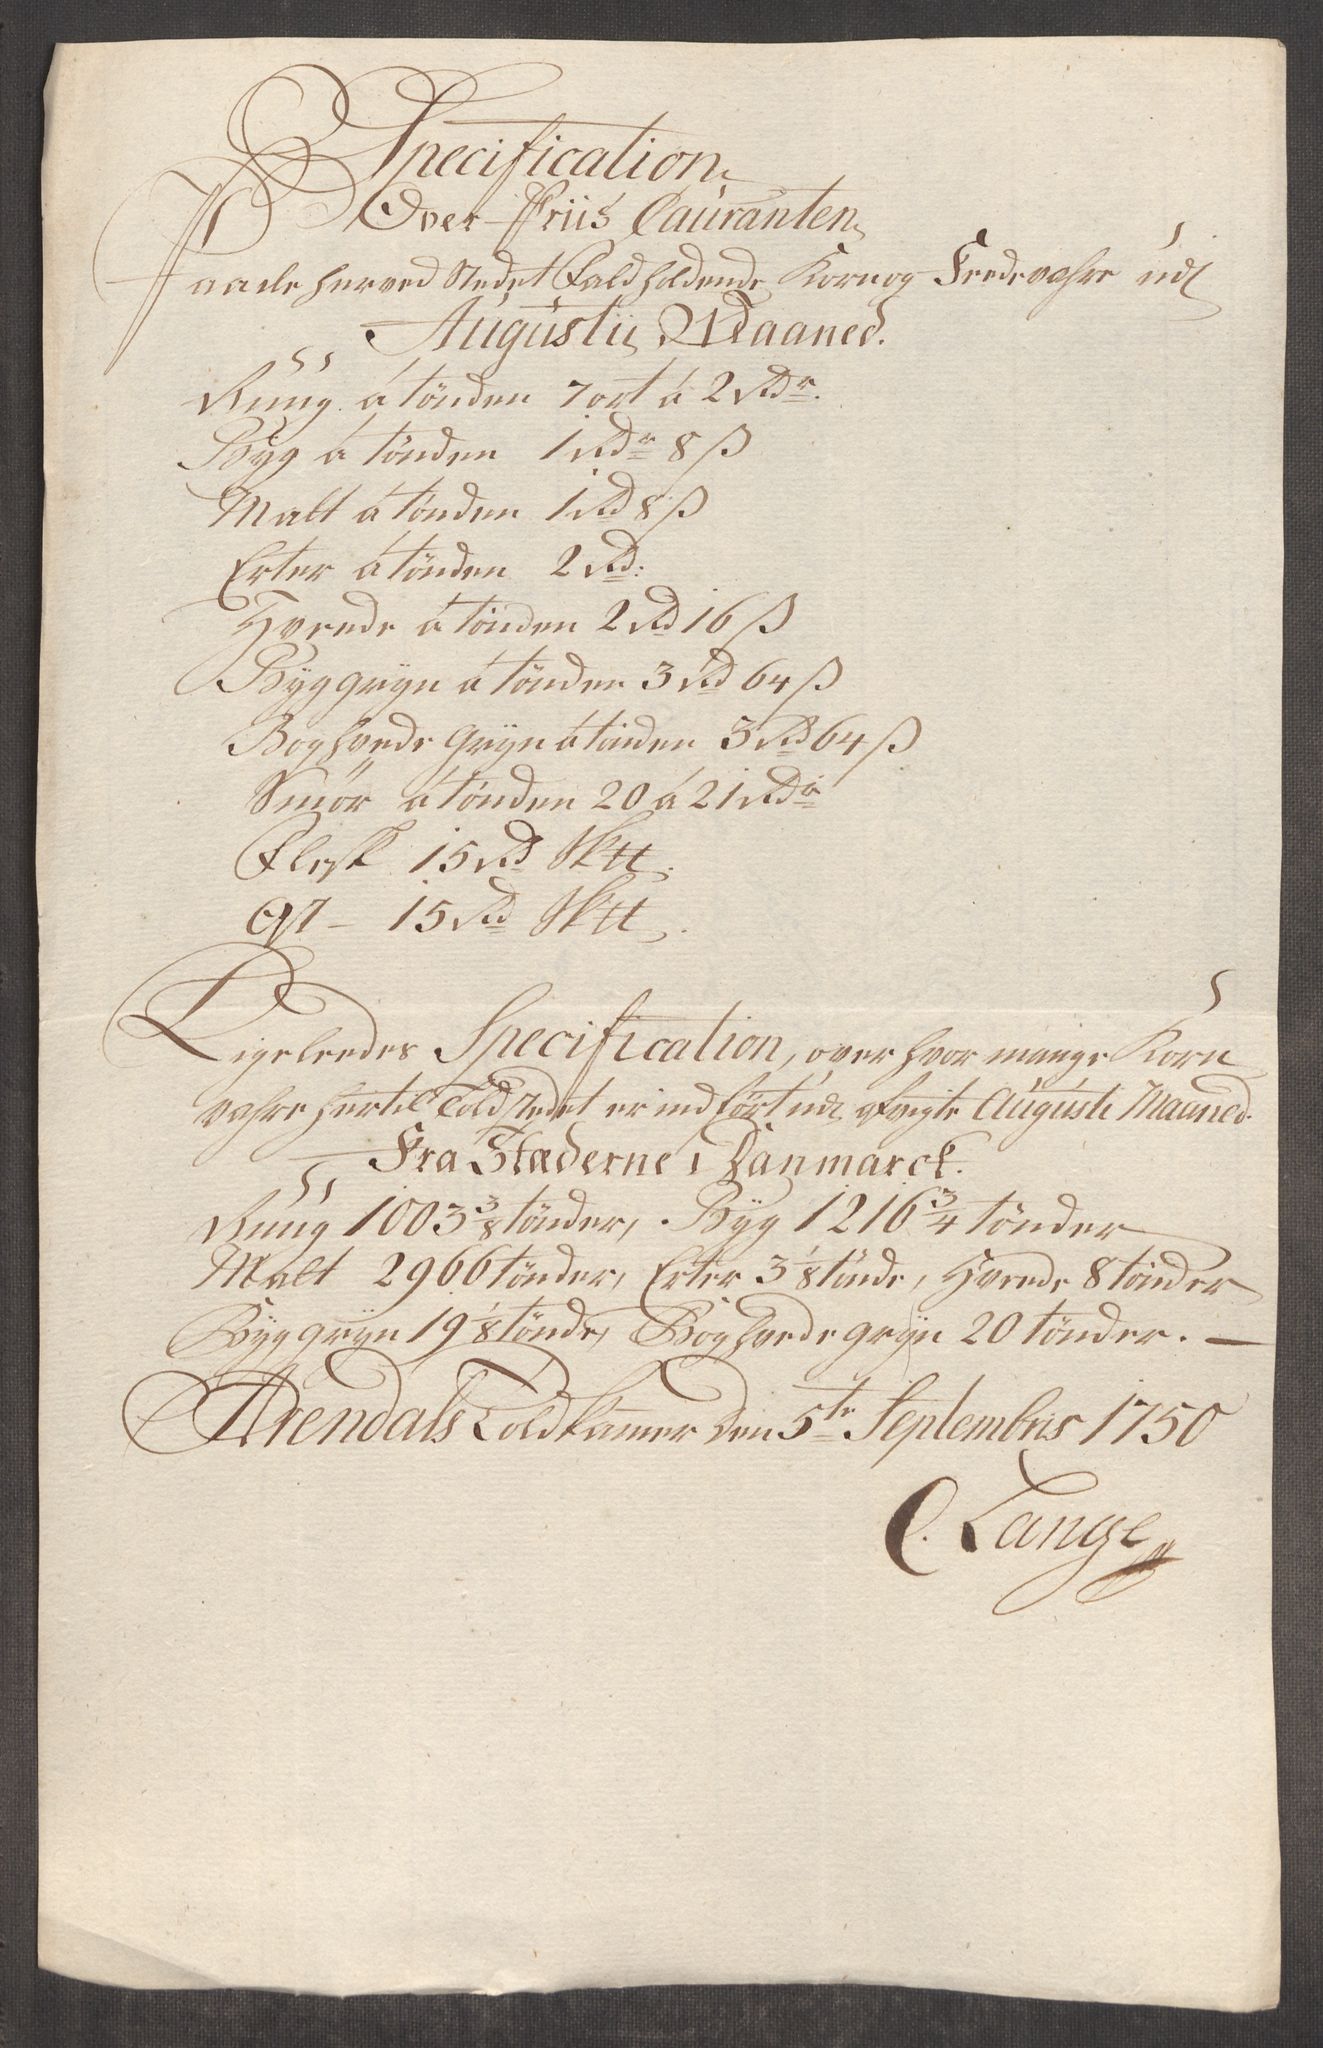 Specification
Over Priis Couranten
Paa de her ved Stedet Faldholdende Korn og Feedevahre udj
Augustii Maaned.
Rúúg á tönden 7 ort á 2 Rdr.
Byg á tönden 1 Rdr 8 ß
Malt á tönden 1 Rd 8 ß
Erter á tönden 2 Rd:
Hvede á tönden 2 Rd 16 ß
Byggryn á tönden 3 Rd 64 ß
Boghvede Gryn á tönden 3 Rd 64 ß
Smör á tönden 20 á 21 Rdr
Flesk 15 Rd Sktt.
15 Rd Sktt.
Ligeleedes Specification, over hvor mange Korn
vahre hertil Toldstedet er indfört udj Augústi Maaned.
Fra Stæderne i Danmarck.
Rúúg 1003 3/8 tönder, Byg 1216 3/4 tönder
Malt 2966 tönder, Erter 3 1/8 tönde, Hvede 8 tönder
Byggryn 19 1/8 tönde, Boghvede gryn 20 tönder. —
Arendals Toldkamer den 5te Septembris 1750
C. Lange